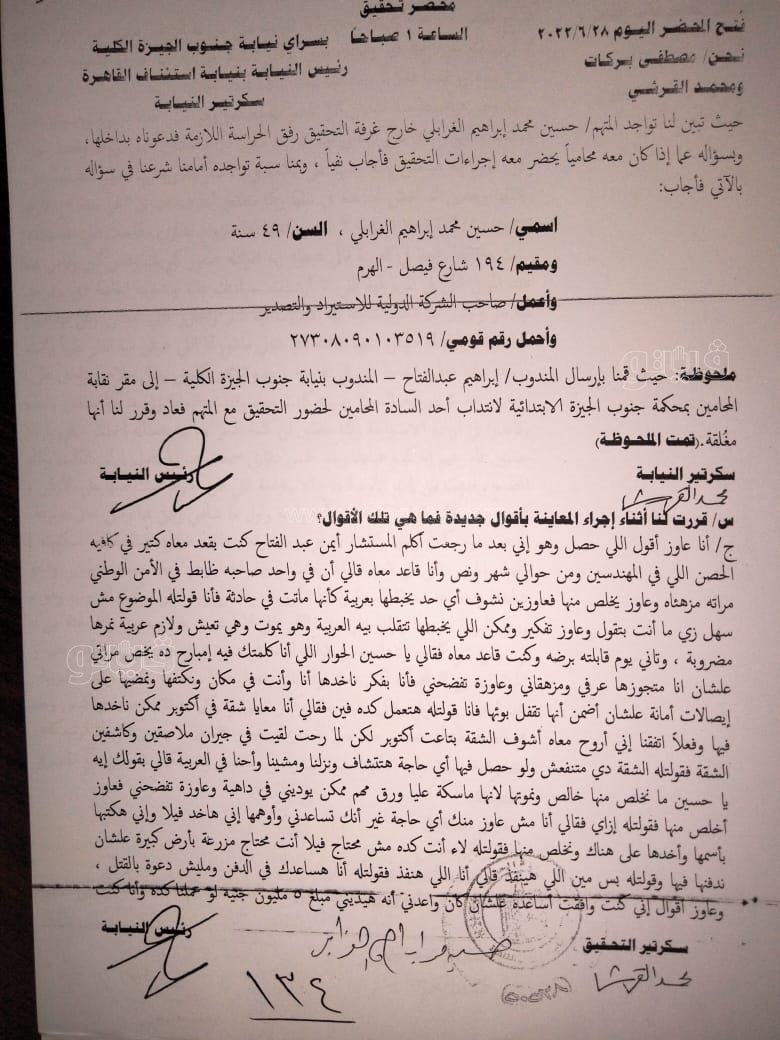 محضر تحقيق
فُتح المحضر اليوم ٢٠٢٢/٦/٢٨ الساعة ١ صباحاً بسراي نيابة جنوب الجيزة الكلية
نحن/ مصطفى بركات رئيس النيابة بنيابة استئناف القاهرة
ومحمد القرشي سكرتير النيابة
حيث تبين لنا تواجد المتهم/ حسين محمد إبراهيم الغرابلي خارج غرفة التحقيق رفق الحراسة اللازمة فدعوناه بداخلها،
وبسؤاله عما إذا كان معه محامياً يحضر معه إجراءات التحقيق فأجاب نفياً ، وبمناسبة تواجده أمامنا شرعنا في سؤاله
بالآتي فأجاب:
اسمي/ حسين محمد إبراهيم الغرابلي ، السن/ ٤٩ سنة
ومقيم/ ١٩٤ شارع فيصل - الهرم
وأعمل/ صاحب الشركة الدولية للاستيراد والتصدير
وأحمل رقم قومي/ ٢٧٣٠٨٠٩٠١٠٣٥١٩
ملحوظة: حيث قمنا بإرسال المندوب/ إبراهيم عبدالفتاح – المندوب بنيابة جنوب الجيزة الكلية – إلى مقر نقابة
المحامين بمحكمة جنوب الجيزة الابتدائية لانتداب أحد السادة المحامين لحضور التحقيق مع المتهم فعاد وقرر لنا أنها
مغلقة.(تمت الملحوظة)
سكرتير النيابة رئيس النيابة
محمد القرشي
س/ قررت لنا أثناء إجراء المعاينة بأقوال جديدة فما هي تلك الأقوال؟
ج/ أنا عاوز أقول اللي حصل وهو إني بعد ما رجعت أكلم المستشار أيمن عبد الفتاح كنت بقعد معاه كتير في كافيه
الحصن اللي في المهندسين ومن حوالي شهر ونص وأنا قاعد معاه قالي أن في واحد صاحبه ظابط في الأمن الوطني
مراته مزهقاه وعاوز يخلص منها فعاوزين نشوف أي حد يخبطها بعربية كأنها ماتت في حادثة فأنا قولتله الموضوع مش
سهل زي ما أنت بتقول وعاوز تفكير وممكن اللي يخبطها تتقلب بيه العربية وهو يموت وهي تعيش ولازم عربية نمرها
مضروبة ، وتاني يوم قابلته برضه وكنت قاعد معاه فقالي يا حسين الحوار اللي أنا كلمتك فيه إمبارح ده يخص مراتي
علشان انا متجوزها عرفي ومزهقاني وعاوزة تفضحني فأنا بفكر ناخدها أنا وأنت في مكان ونكتفها ونمضيها على
إيصالات أمانة علشان أضمن أنها تقفل بوئها فانا قولتله هتعمل كده فين فقالي أنا معايا شقة في أكتوبر ممكن ناخدها
فيها وفعلاً اتفقنا إني أروح معاه أشوف الشقة بتاعت أكتوبر لكن لما رحت لقيت في جيران ملاصقين وكاشفين
الشقة فقولتله الشقة دي متنفعش ولو حصل فيها أي حاجة هتتشاف ونزلنا ومشينا وأحنا في العربية قالي بقولك إيه
يا حسين ما نخلص منها خالص ونموتها لانها ماسكة عليا ورق مهم ممكن يوديني في داهية وعاوزة تفضحني فعاوز
أخلص منها فقولتله إزاي فقالي أنا مش عاوز منك أي حاجة غير أنك تساعدني وأوهمها إني هاخد فيلا وإني هكتبها
بأسمها وأخدها على هناك ونخلص منها فقولتله لاء أنت كده مش محتاج فيلا أنت محتاج مزرعة بأرض كبيرة علشان
ندفنها فيها وقولتله بس مين اللي هينفذ قالي أنا اللي هنفذ فقولتله أنا هساعدك في الدفن ومليش دعوة بالقتل ،
وعاوز أقول إني كنت وافقت أساعده علشان كان واعدني أنه هيديني مبلغ ٥ مليون جنيه لو عملنا كده وأنا كنت
سكرتير التحقيق رئيس النيابة
محمد القرشي
١٣٤
فيتو
فيتو